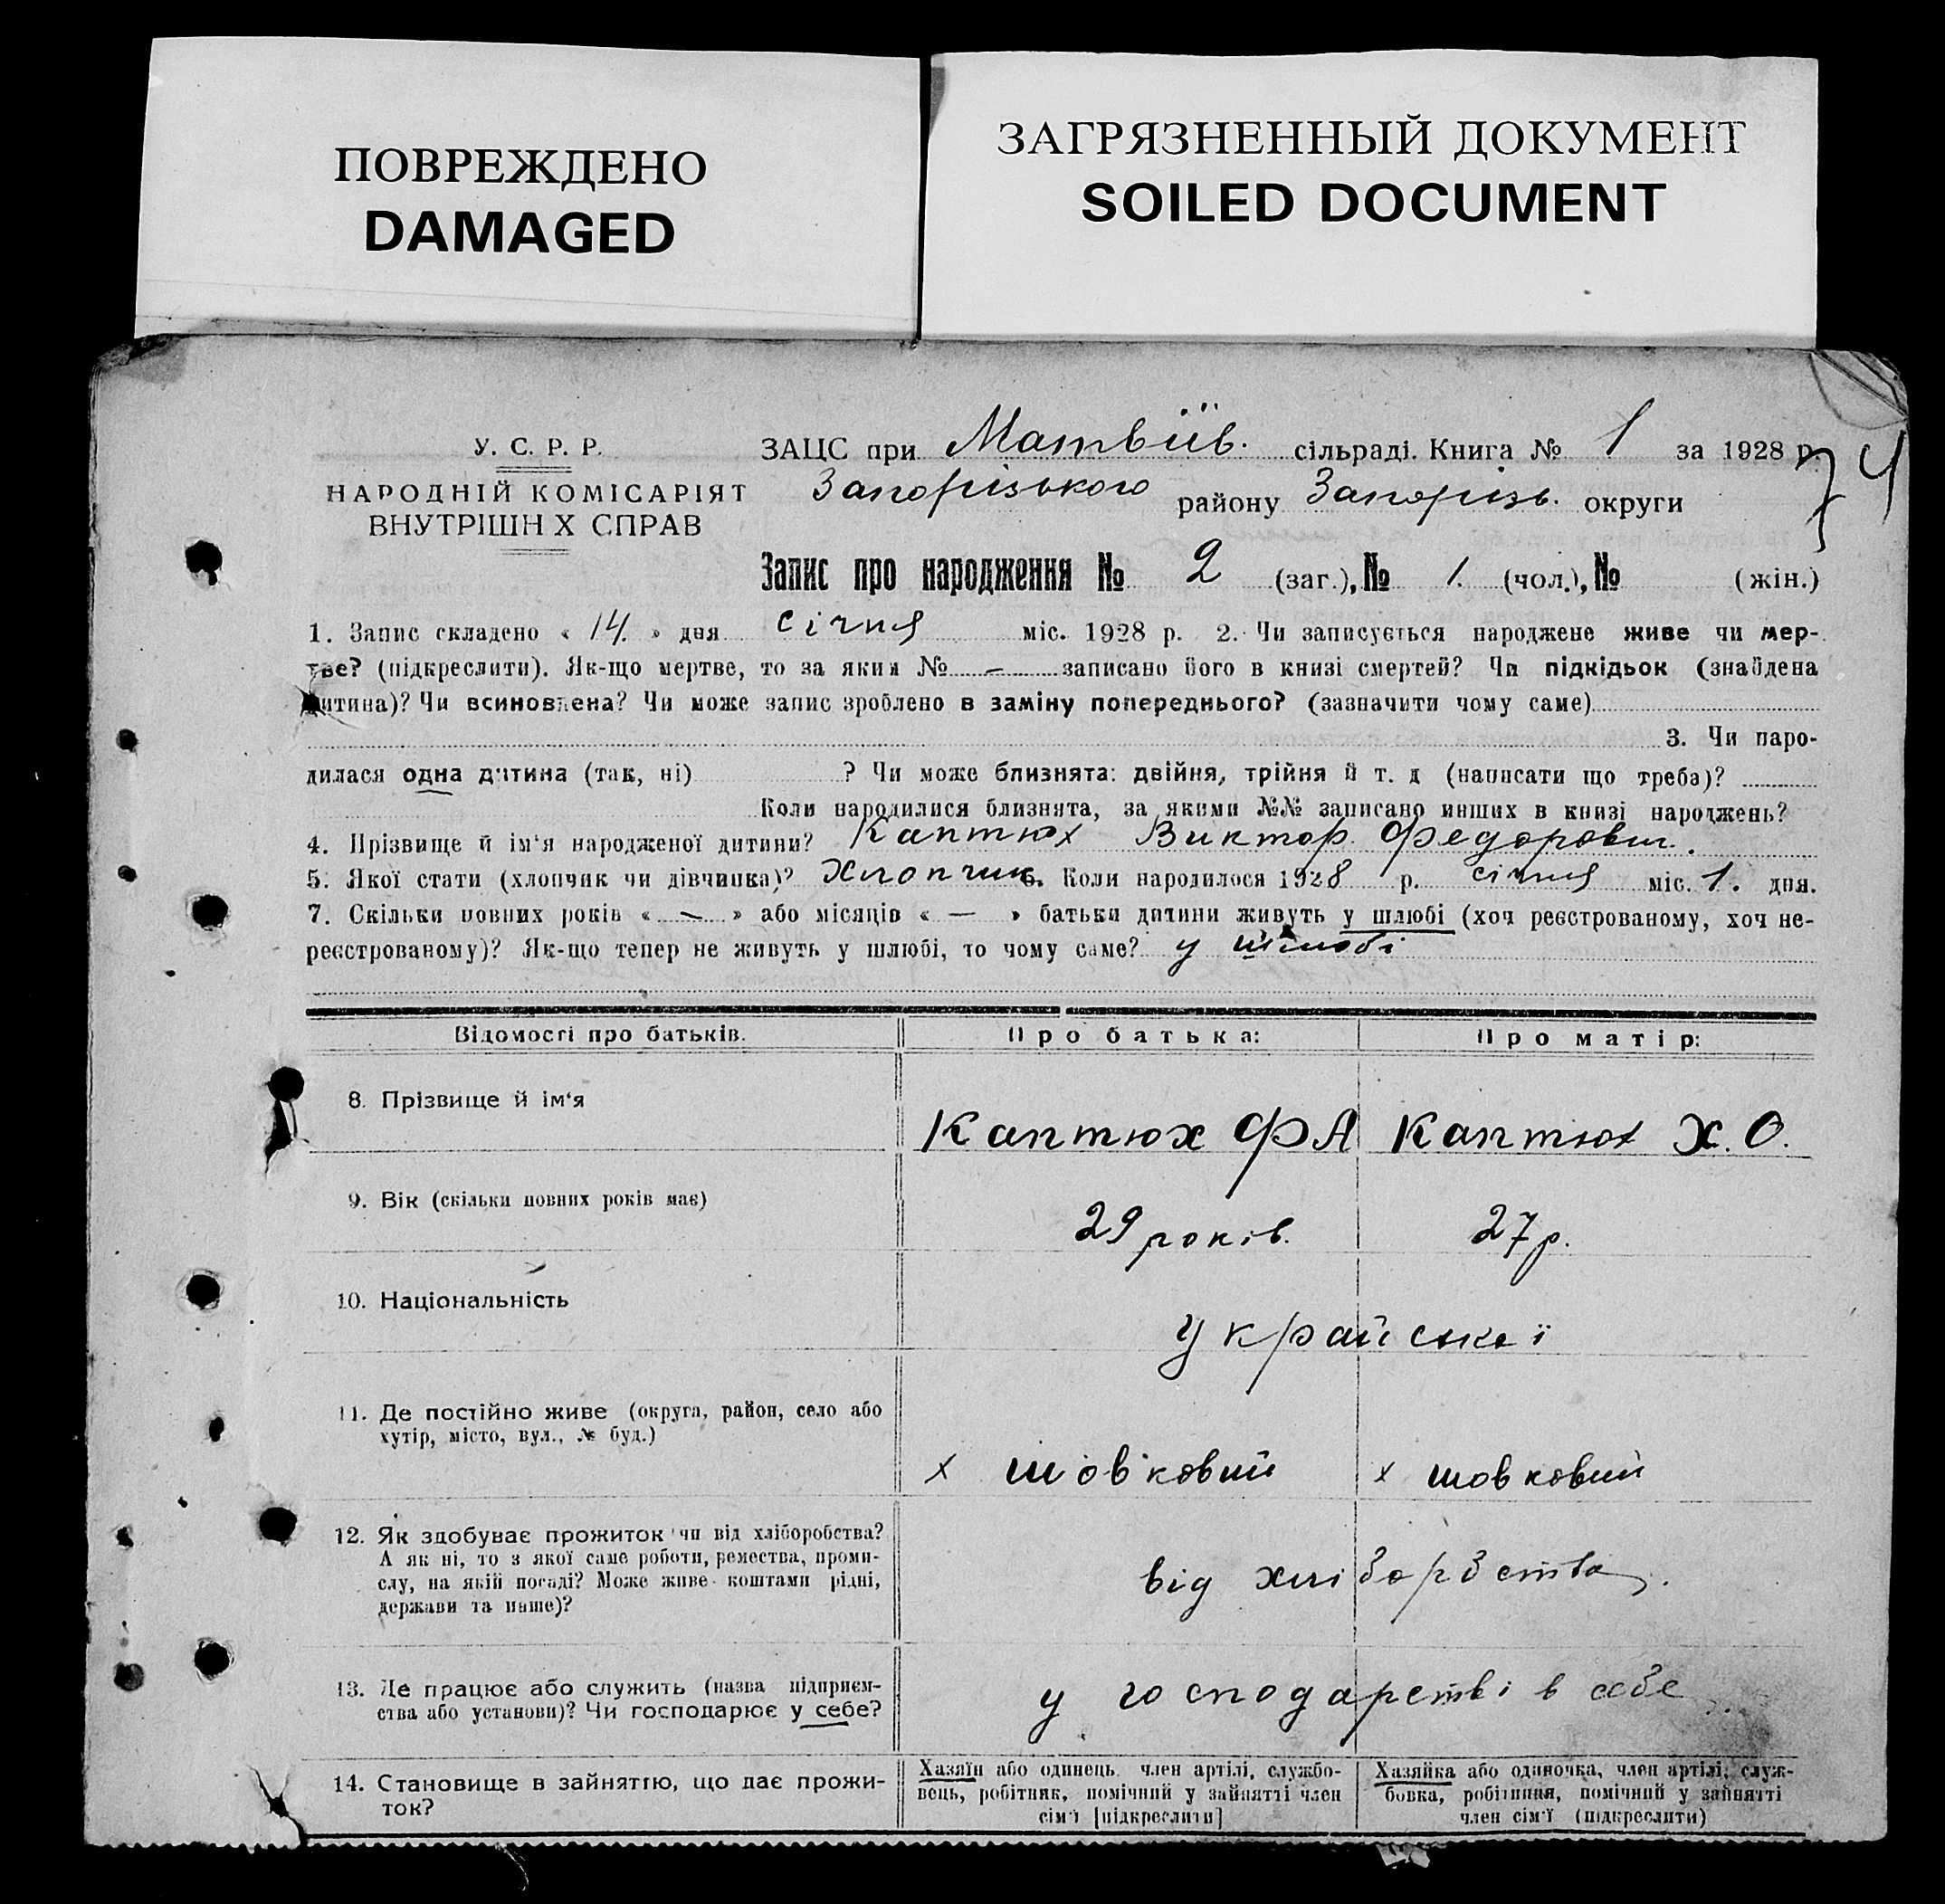 ПОВРЕЖДЕНО
DAMAGED
ЗАГРЯЗНЕННЫЙ ДОКУМЕНТ
SOILED DOCUMENT
У. С. Р. Р.
НАРОДНІЙ КОМІСАРІЯТ
ВНУТРІШН Х СПРАВ
ЗАЦС при Матвіїв. сільраді. Книга № 1 за 1928 р.
74
Запорізького району Запорізь. округи
Запис про народження № 2 (заг.), № 1. (чол.), № (жін.)
1. Запис складено « 14. » дня січня міс. 1928 р. 2. Чи записується народжене живе чи мер-
тве? (підкреслити). Як-що мертве, то за яким № – записано його в книзі смертей? Чи підкідьок (знайдена
дитина)? Чи всиновлена? Чи може запис зроблено в заміну попереднього? (зазначити чому саме)
3. Чи наро-
дилася одна дитина (так, ні) ? Чи може близнята: двійня, трійня й т. д (написати що треба)?
Коли народилися близнята, за якими №№ записано инших в книзі народжень?
4. Прізвище й ім'я народженої дитини? Каптюх Виктор Федорович.
5. Якої стати (хлопчик чи дівчинка)? Хлопчик 6. Коли народилося 1928 р. січня міс. 1. дня.
7. Скільки повних років « – » або місяців « — » батьки дитини живуть у шлюбі (хоч реєстрованому, хоч не-
реєстрованому)? Як-що тепер не живуть у шлюбі, то чому саме? у шлюбі
Відомості про батьків. Про батька: Про матір:
8. Прізвище й ім'я Каптюх ФА Каптюх Х. О.
9. Вік (скільки повних років має) 29 років. 27 р.
10. Національність Украйської
11. Де постійно живе (округа, район, село або
хутір, місто, вул., № буд.)
х шовковий х шовковий
12. Як здобуває прожиток чи від хліборобства?
А як ні, то з якої саме роботи, ремества, проми-
слу, на якій посаді? Може живе коштами рідні,
держави та инше)?
від хліборбства.
13. Де працює або служить (назва підприєм-
ства або установи)? Чи господарює у себе?
у господарстві в себе
14. Становище в зайняттю, що дає прожи-
ток?
Хазяїн або одинець член артілі, службо-
вець, робітник, помічний у зайнятті член
сім'ї [підкреслити]
Хазяйка або одиночка, член артілі, служ-
бовка, робітниця, помічний у зайнятті
член сім'ї (підкреслити)